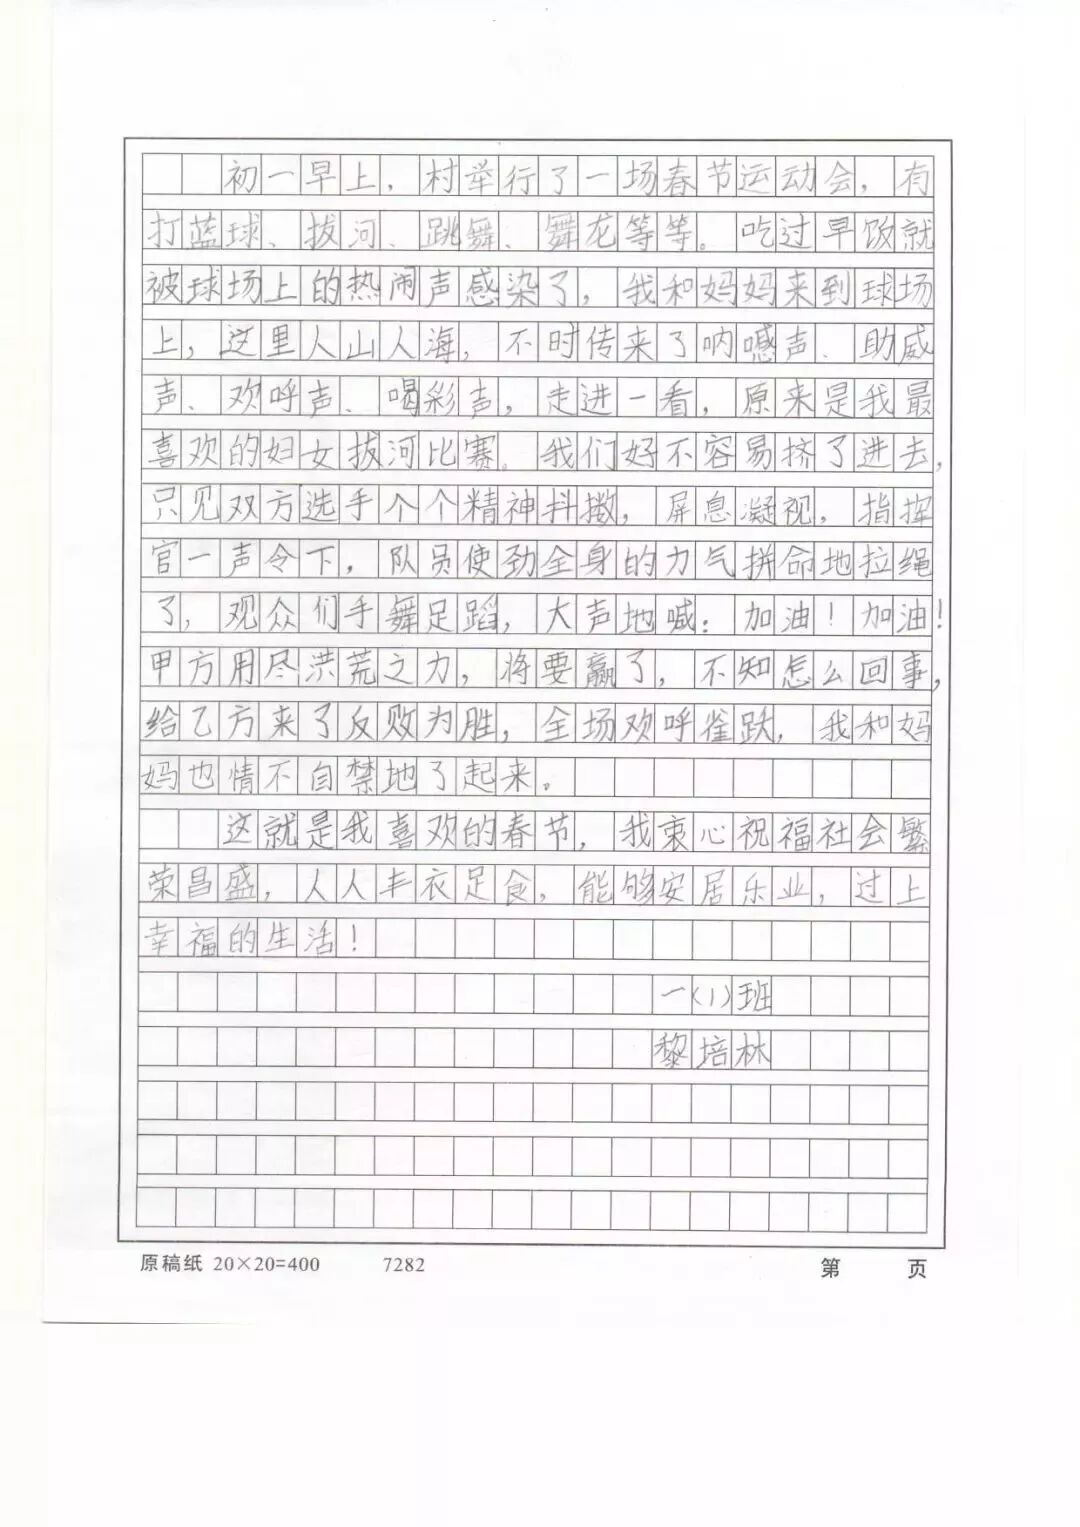 初一早上，村举行了一场春节运动会，有
打蓝球、拔河、跳舞、舞龙等等。吃过早饭就
被球场上的热闹声感染了，我和妈妈来到球场
上，这里人山人海，不时传来了呐喊声、助威
声、欢呼声、喝彩声，走进一看，原来是我最
喜欢的妇女拔河比赛。我们好不容易挤了进去，
只见双方选手个个精神抖擞，屏息凝视，指挥
官一声令下，队员使劲全身的力气拼命地拉绳
了，观众们手舞足蹈，大声地喊：加油！加油！
甲方用尽洪荒之力，将要赢了，不知怎么回事，
给乙方来了反败为胜，全场欢呼雀跃，我和妈
妈也情不自禁地了起来。
这就是我喜欢的春节，我衷心祝福社会繁
荣昌盛，人人丰衣足食，能够安居乐业，过上
幸福的生活！
一（1）班
黎培林
原稿纸 20×20=400 7282 第 页